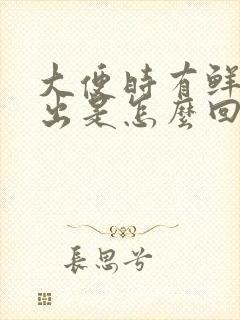 大便時有鮮
出是怎麼回
長思兮